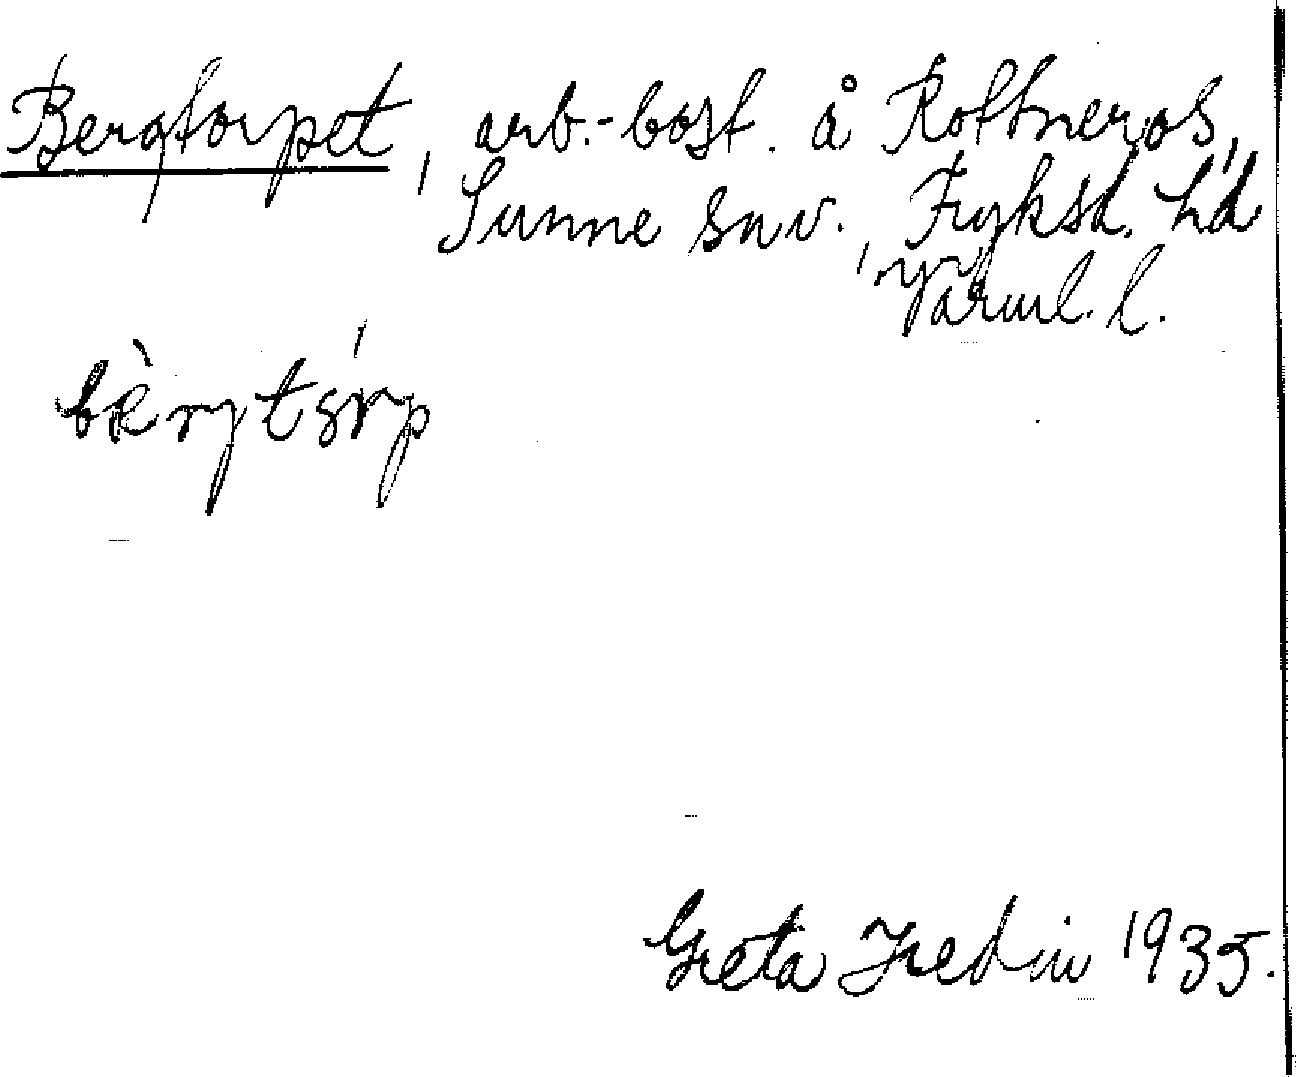 Bergtorpet, arb.-bost. å Rottneros,
Sunne snv., Fryksd. hd
Värml. l.
Greta Hedin 1935.